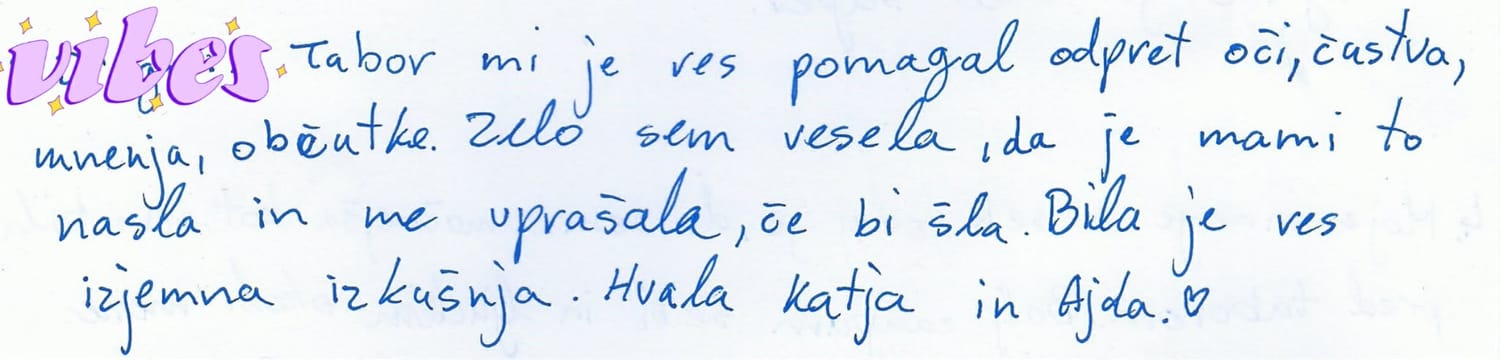 vibes Tabor mi je res pomagal odpret oči, čustva,
mnenja, občutke. Zelo sem vesela, da je mami to
nasla in me uprašala, če bi šla. Bila je res
izjemna izkušnja. Hvala Katja in Ajda.♡